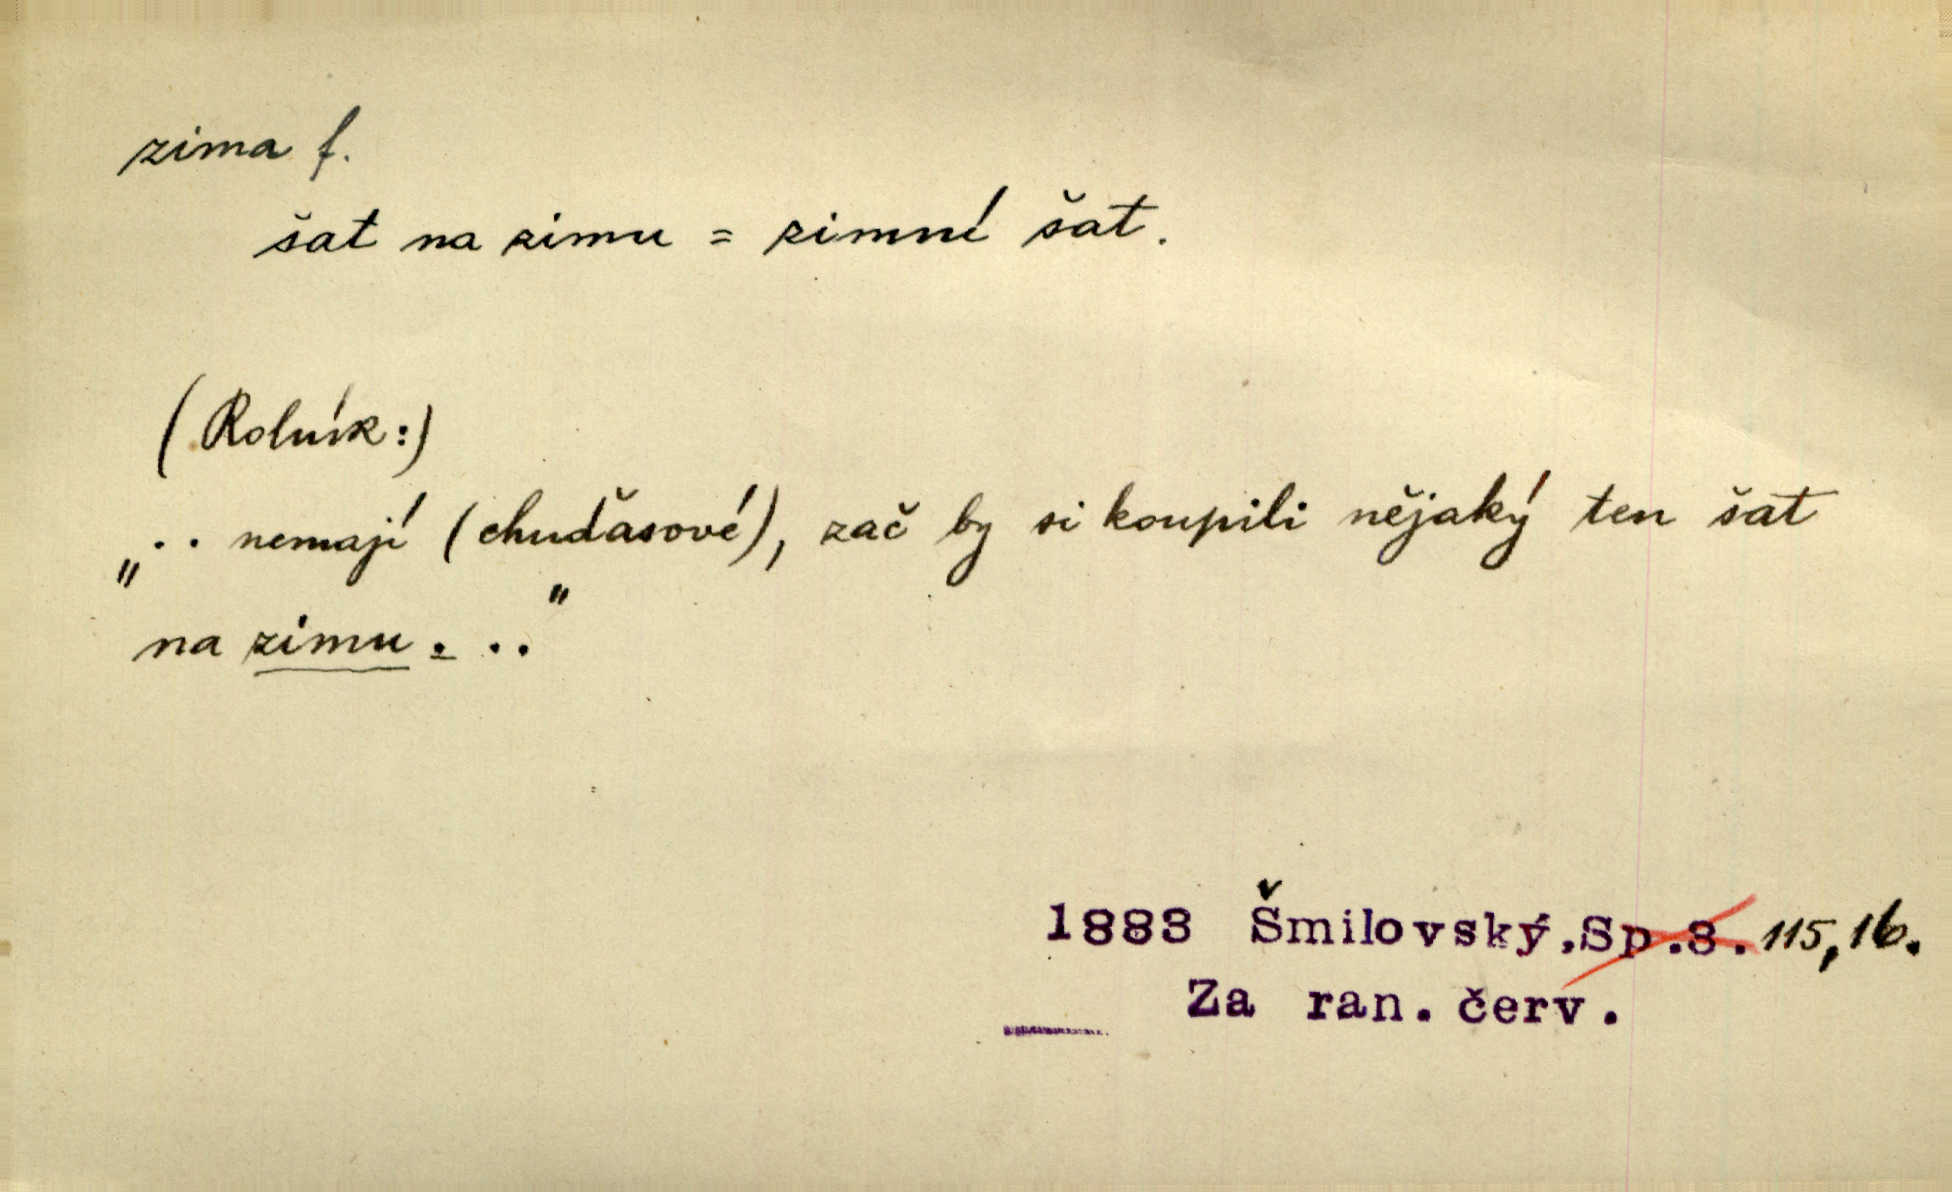 zima f.
šat na zimu = zimní šat.
(Rolník:)
„.. nemají (chuďasové), zač by si koupili nějaký ten šat
na zimu. .."
1883 Šmilovský, Sp.3. 115,16.
Za ran. červ.